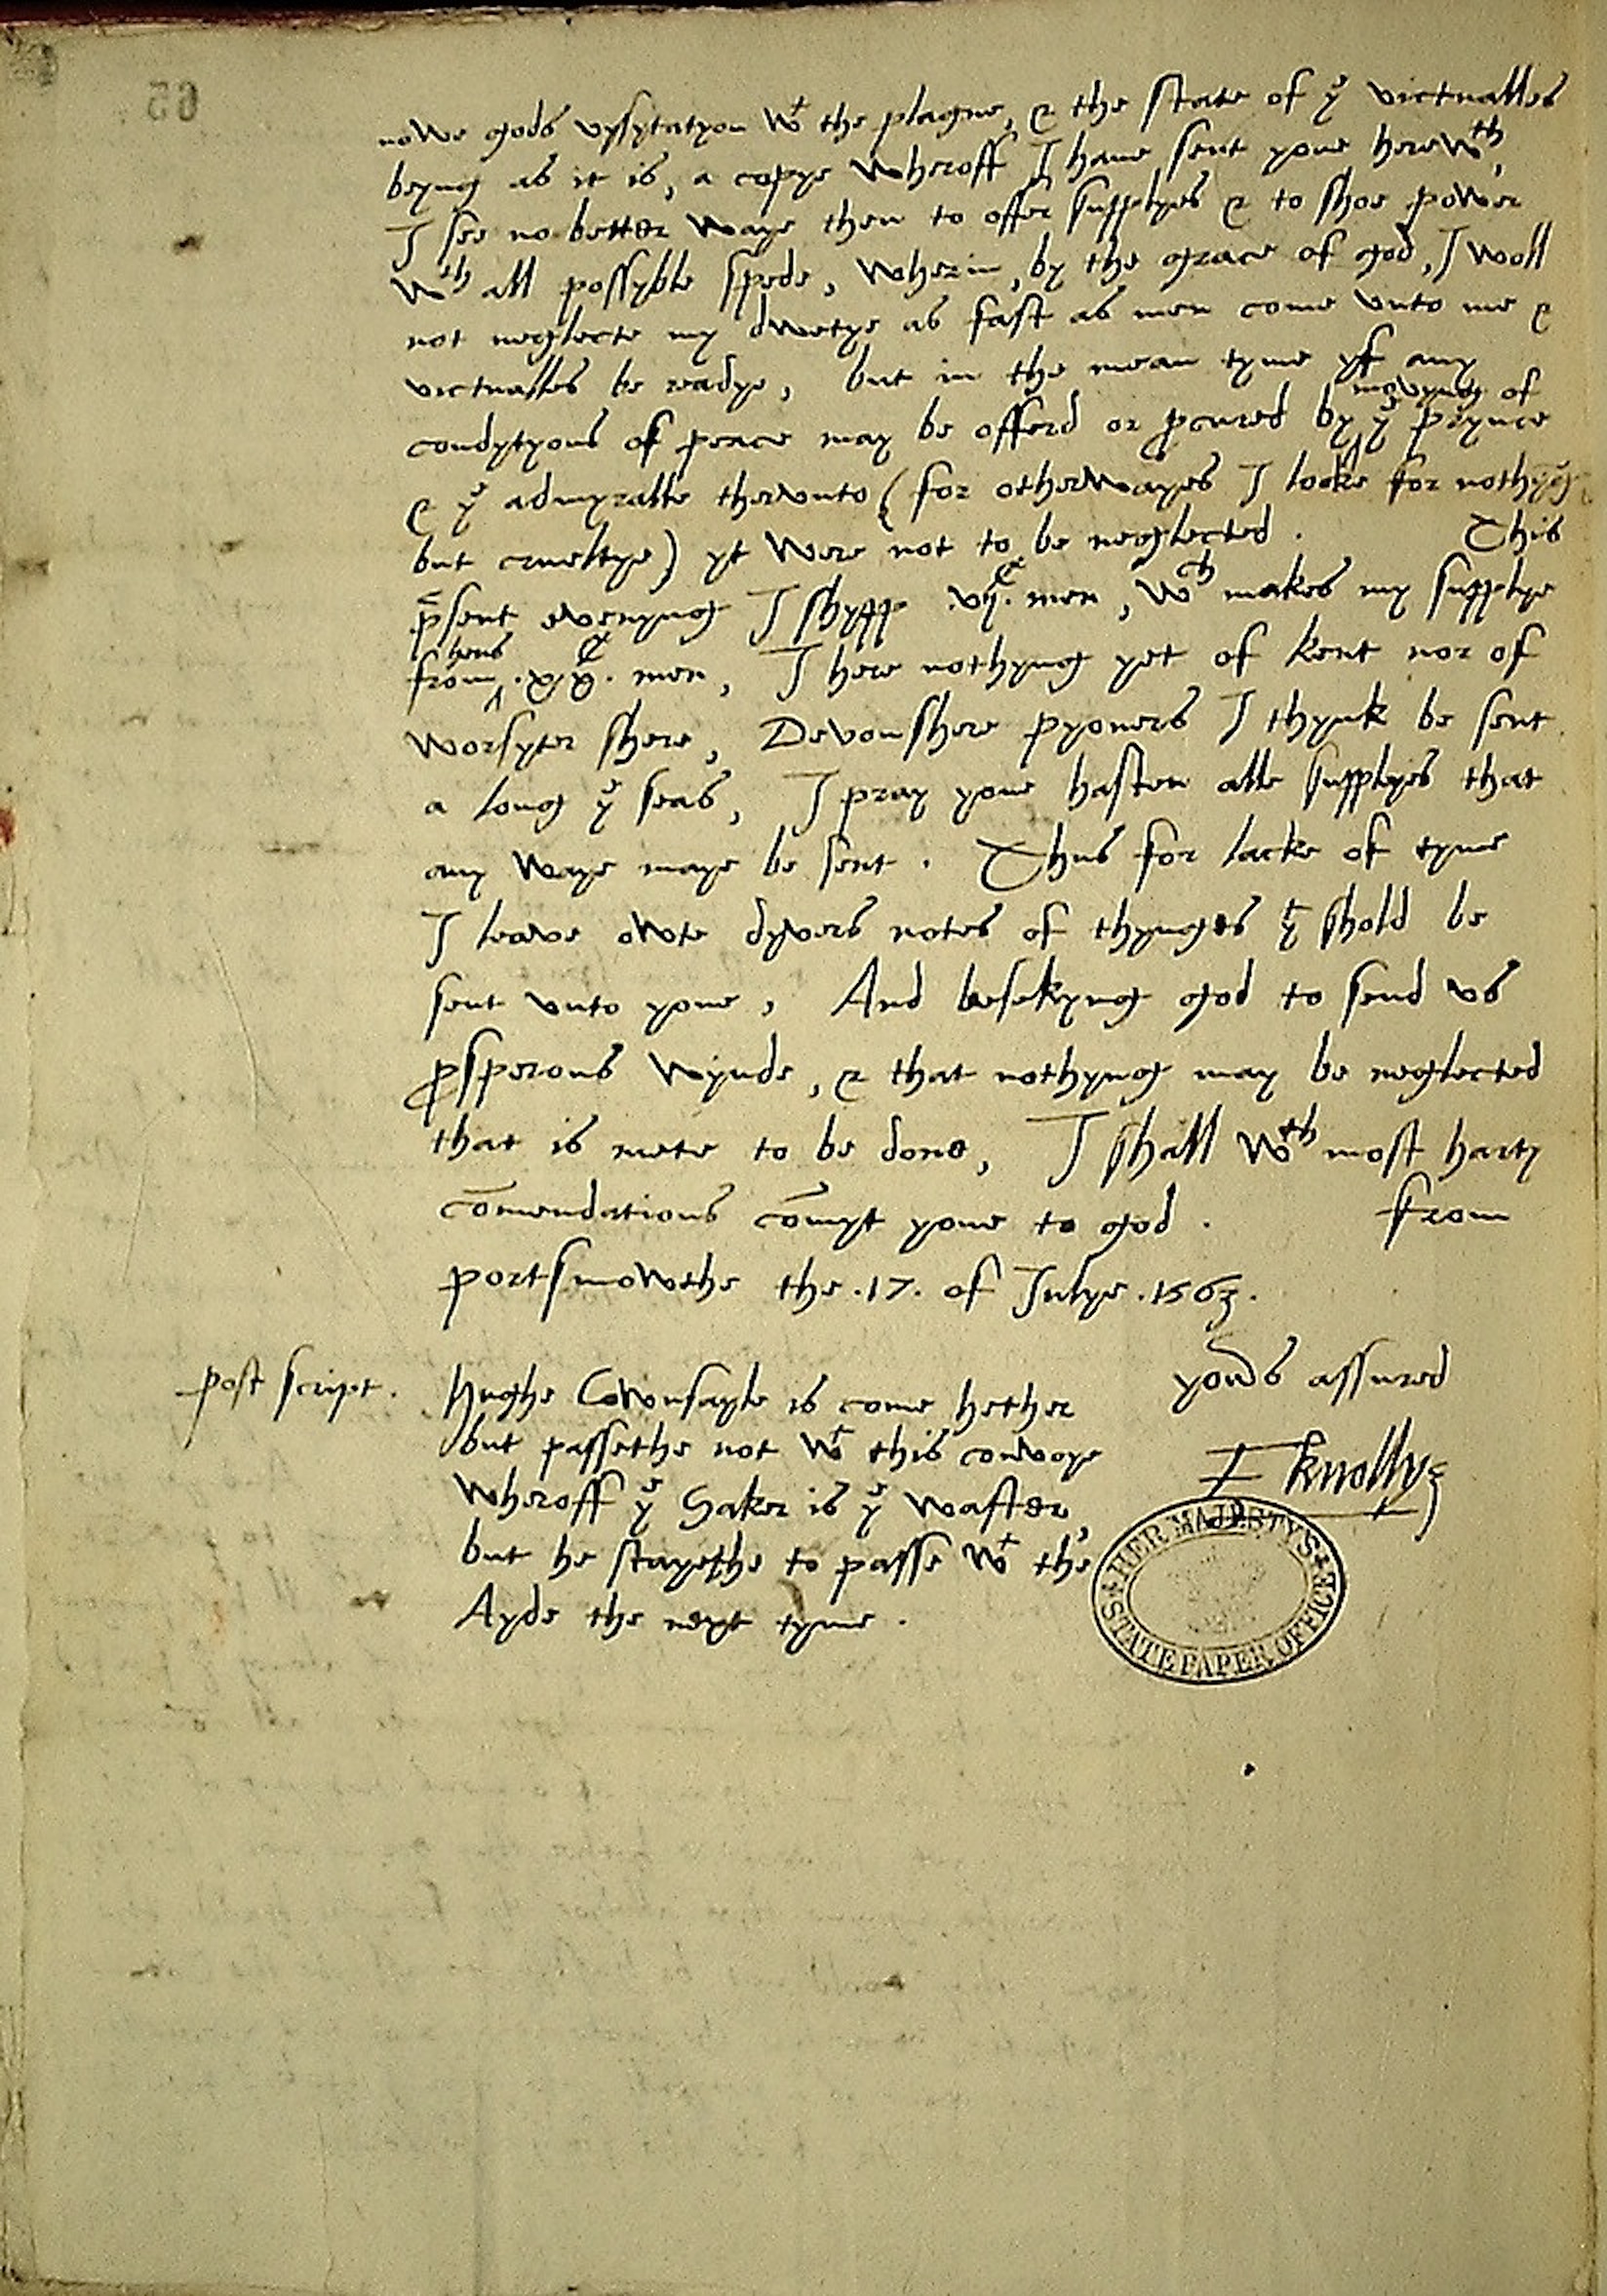 nowe gods vysytatyon wt the plague, & the state of ye victualles
beyng as it is, a copye wheroff I haue sent youe herewth,
I see no better waye then to offer supplyes & to shoe power
wth all possyble spede, wherin, by the grace of god, I woll
not neglecte my dwetye as fast as men come vnto me &
victualles be readye, but in the mean tyme yf any
movyng of
condytyons of peace may be offerd or pcured by ^ ye prynce
& ye admyralle thervnto (for otherwayes I looke for nothyng
but crueltye) yt were not to be neglected . This
psent evenyng I shypp .vijC. men, wch makes my supplye
hens
from ^ . men, I here nothyng yet of kent nor of
worsyter shere, Devonshere pyoners I thynk be sent
a long ye seas, I pray youe hasten alle supplyes that
any waye maye be sent . Thus for lacke of tyme
I leave owte dyvers notes of thynges yt shold be
sent vnto youe, And besekyng god to send vs
psperous wynde, & that nothyng may be neglected
that is mete to be done, I shall wth most harty
comendations comyt youe to god . from
portsmowthe the .17. of Julye .1563.
yours assured
F knollys
post script. Hughe Cownsayle is come hether
but passethe not wt this convoye
wheroff ye Saker is ye wafter,
but he stayethe to passe wt the
Ayde the next tyme .
HER MAJESTY'S STATE PAPER OFFICE
65